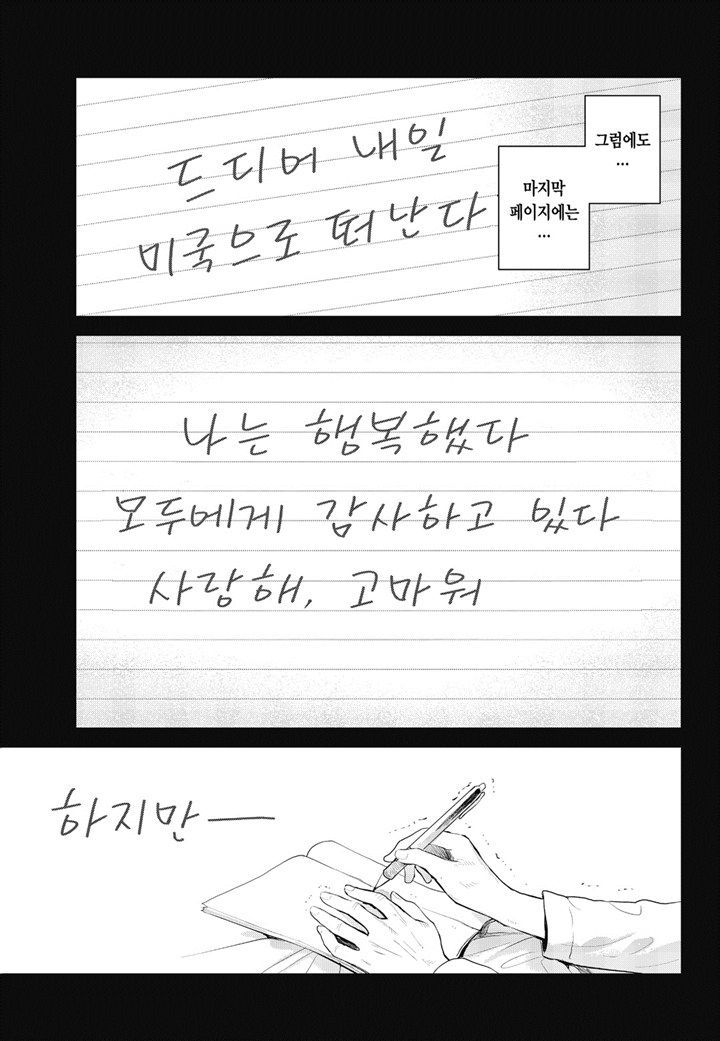 그럼에도
...
마지막
페이지에는
...
드디어 내일
미국으로 떠난다
나는 행복했다
모두에게 감사하고 있다
사랑해, 고마워
하지만—